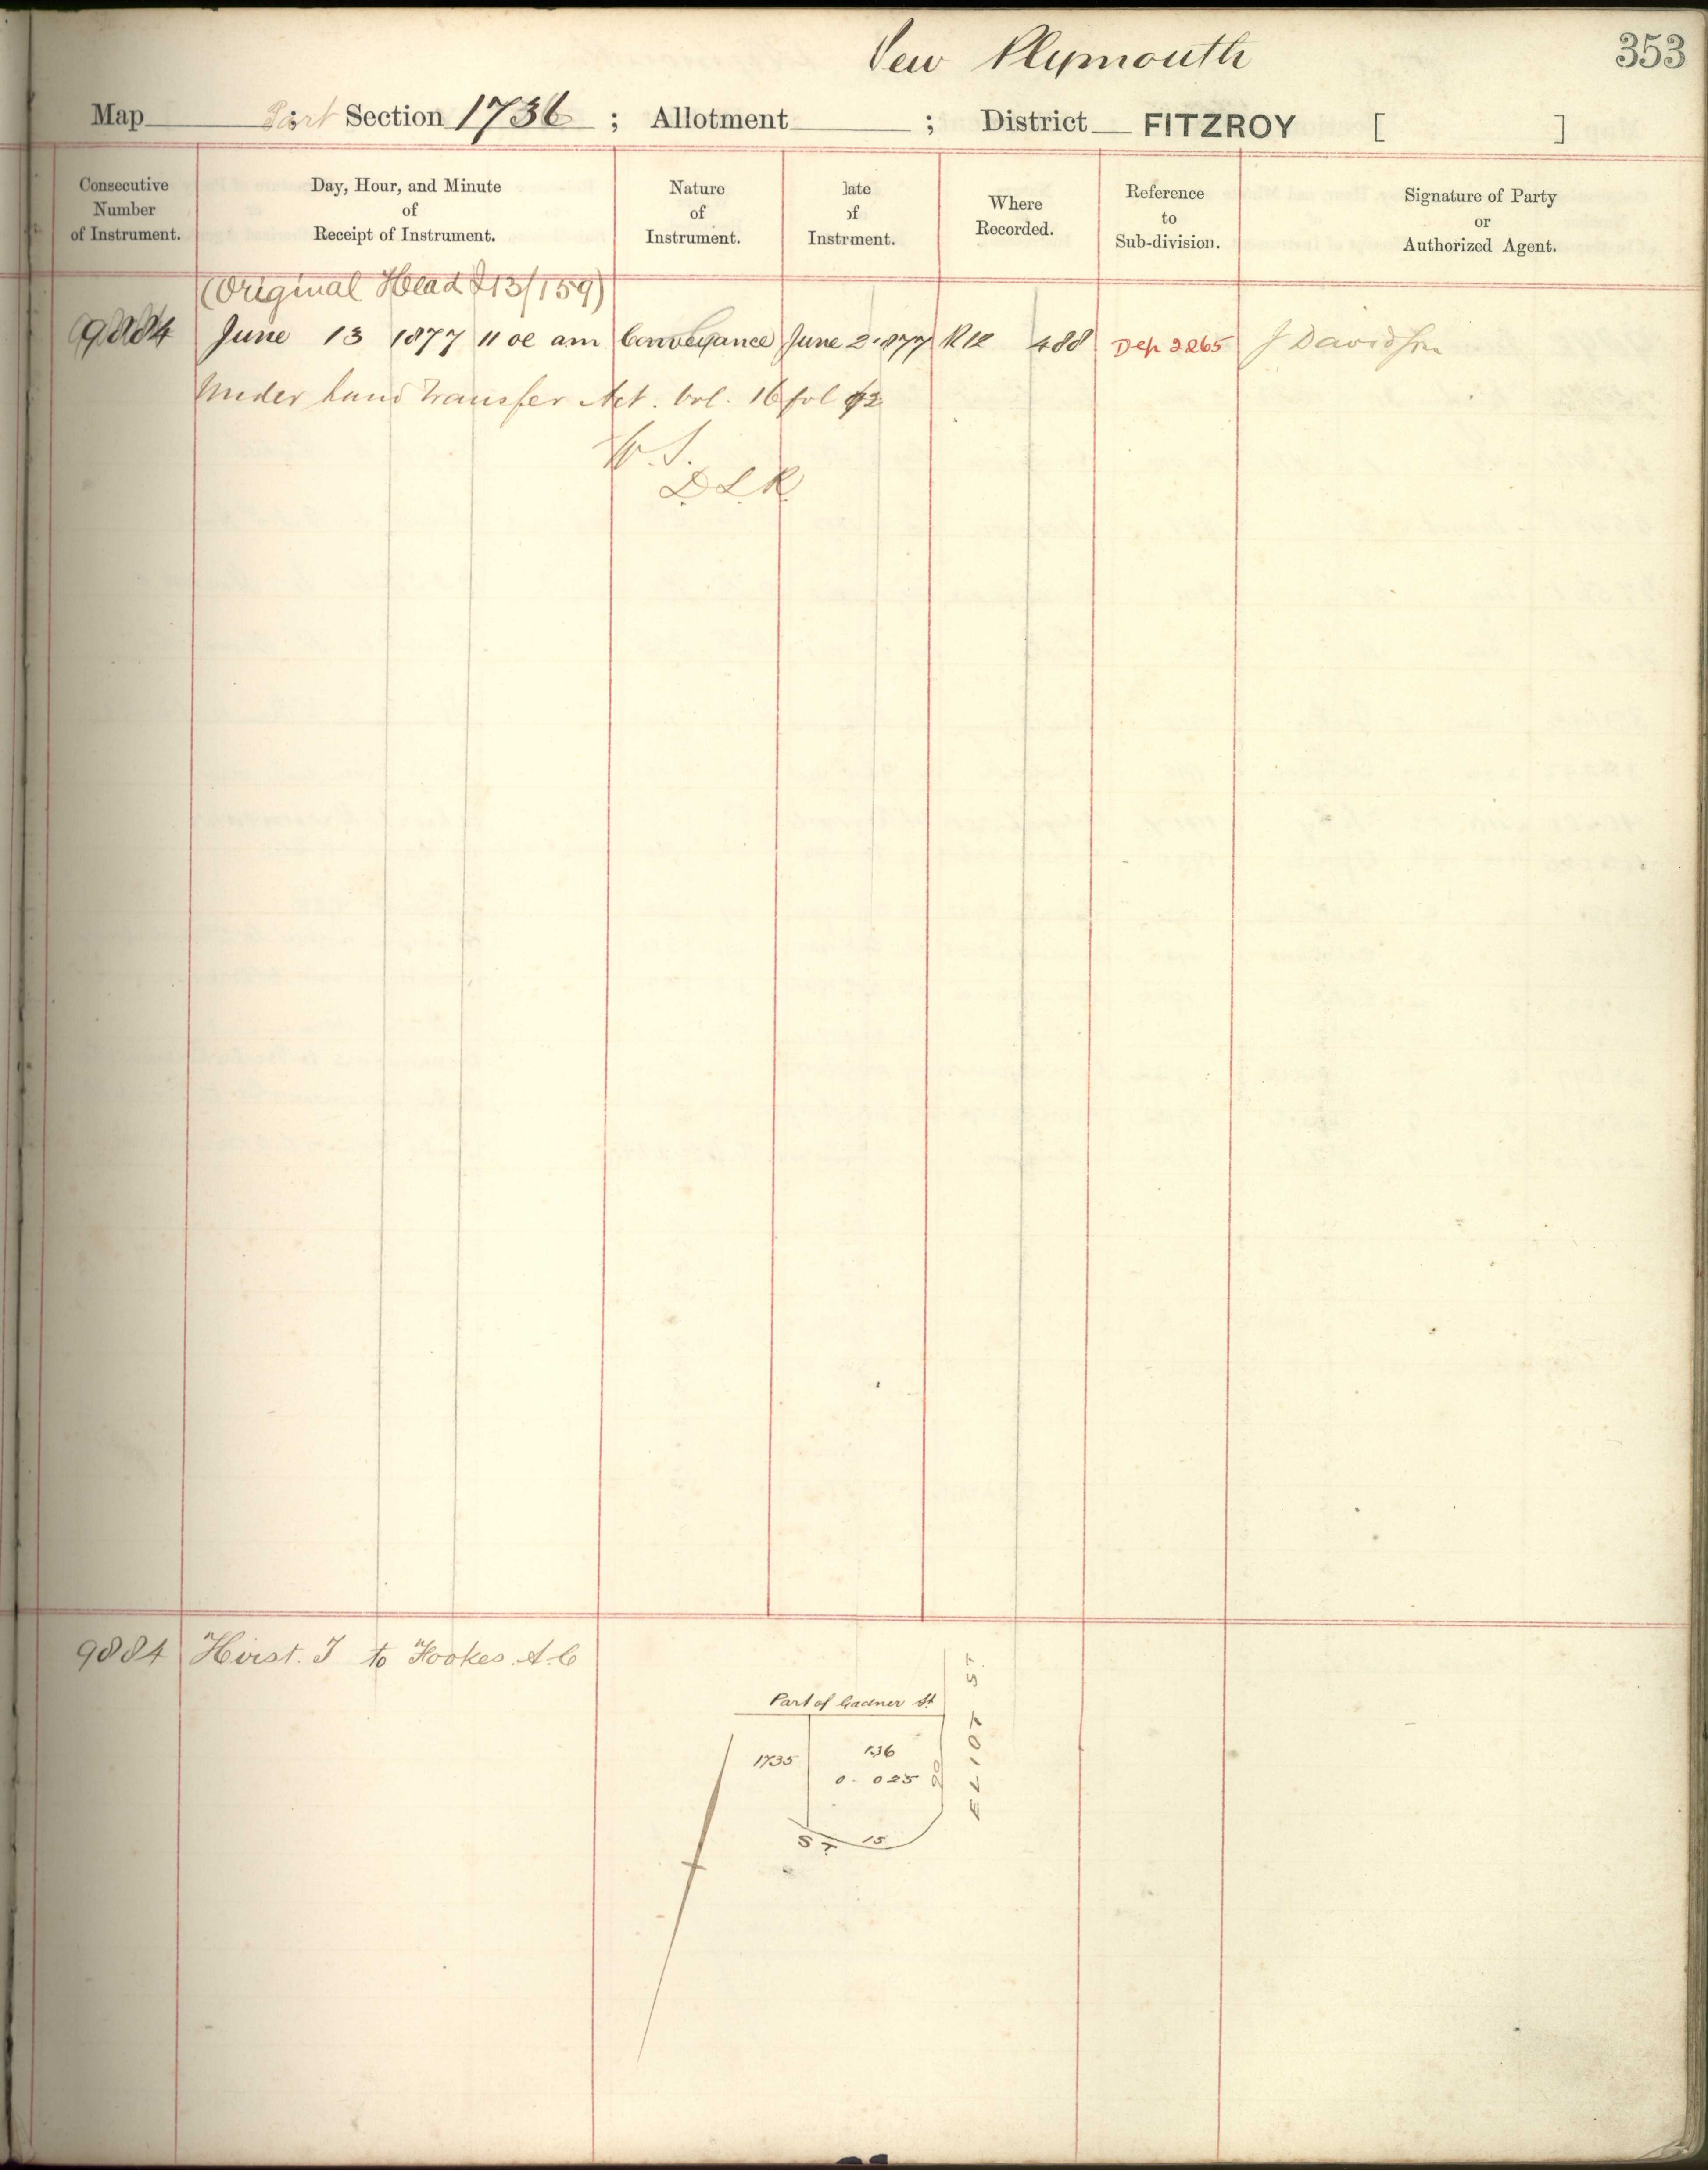 New Plymouth
353
Map Part ; Section 1736 ; Allotment ; District FITZROY [ ]
Consecutive Number of Instrument.
Day, Hour, and Minute of Receipt of Instrument.
Nature of Instrument.
Date of Instrment.
Where Recorded.
Reference to Sub-division.
Signature of Party or Authorized Agent.
(Original Head I13/159)
9884 June 13 1877 11 oc am Conveyance June 2 1877 R12 488 Dep 2265 J Davidson
Under Land Transfer Act. Vol. 16 fol 92
W. S.
D L R
9884 Hirst. T to Hookes. A. C
Part of Gadner St
ELIOT ST
1735
136
0. 025
20
ST 15